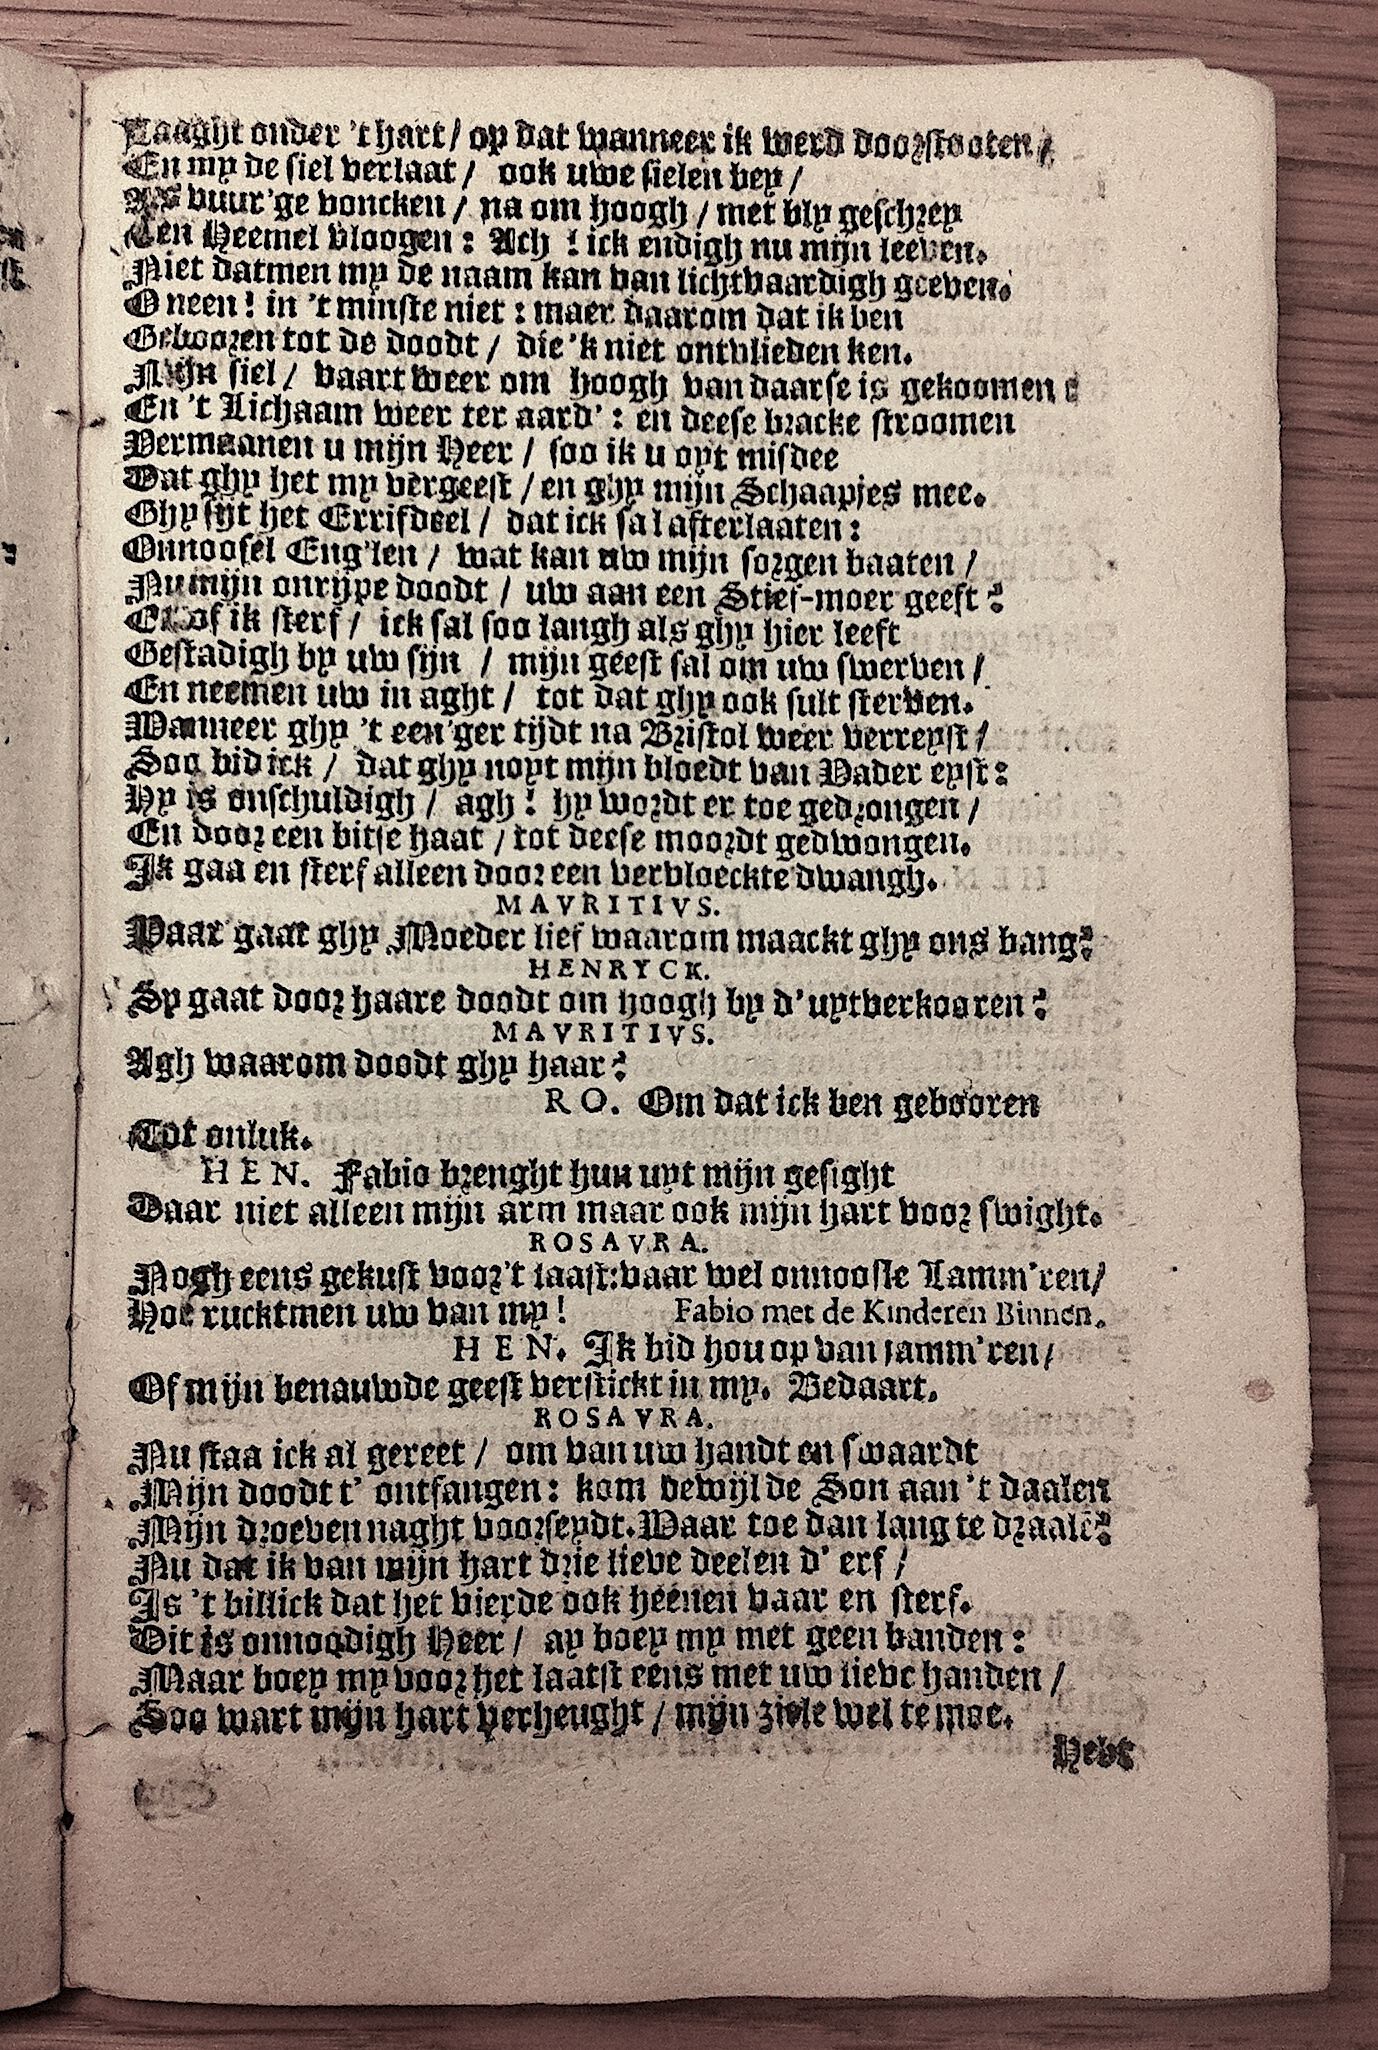 Laaght onder 't hart / op dat wanneer ik werd doorstooten /
En my de siel verlaat / ook uwe sielen bey /
Als vuur'ge voncken / na om hoogh / met bly geschrey
Ten Heemel vloogen : Ach ! ick endigh nu mijn leeven.
Niet datmen my de naam kan van lichtvaardigh geeven.
O neen ! in 't minste niet : maer daarom dat ik ben
Gebooren tot de doodt / die 'k niet ontvlieden ken.
Mijn siel / vaart weer om hoogh van daarse is gekoomen :
En 't Lichaam weer ter aard' : en deese bracke stroomen
Vermaanen u mijn Heer / soo ik u oyt misdee
Dat ghy het my vergeeft / en ghy mijn Schaapjes mee.
Ghy sijt het Errifdeel / dat ick sal afterlaaten :
Onnoosel Eng'len / wat kan uw mijn sorgen baaten /
Nu mijn onrijpe doodt / uw aan een Stief-moer geeft ?
En of ik sterf / ick sal soo langh als ghy hier leeft
Gestadigh by uw sijn / mijn geest sal om uw swerven /
En neemen uw in aght / tot dat ghy ook sult sterven.
Wanneer ghy 't een'ger tijdt na Bristol weer verreyst /
Soo bid ick / dat ghy noyt mijn bloedt van Vader eyst :
Hy is onschuldigh / agh ! hy wordt er toe gedrongen /
En door een bitse haat / tot deese moordt gedwongen.
Ik gaa en sterf alleen door een vervloeckte dwangh.
MAVRITIVS.
Waar gaat ghy Moeder lief waarom maackt ghy ons bang?
HENRYCK.
Sy gaat door haare doodt om hoogh by d'uytverkooren ?
MAVRITIVS.
Agh waarom doodt ghy haar?
RO. Om dat ick ben gebooren
Tot onluk.
HEN. Fabio brenght hun uyt mijn gesight
Daar niet alleen mijn arm maar ook mijn hart voor swight.
ROSAVRA.
Nogh eens gekust voor't laast: vaar wel onnoosle Lamm'ren /
Hoe rucktmen uw van my ! Fabio met de Kinderen Binnen.
HEN. Ik bid hou op van jamm'ren /
Of mijn benauwde geest verstickt in my. Bedaart.
ROSAVRA.
Nu staa ick al gereet / om van uw handt en swaardt
Mijn doodt t' ontfangen : kom dewijl de Son aan 't daalen
Mijn droeven naght voorseydt. Waar toe dan lang te draalē?
Nu dat ik van mijn hart drie lieve deelen d' erf /
Is 't billick dat het vierde ook heenen vaar en sterf.
Dit is onnoodigh Heer / ay boey my met geen banden :
Maar boey my voor het laatst eens met uw lieve handen /
Soo wart mijn hart verheught / mijn ziele wel te moe.
Hebt